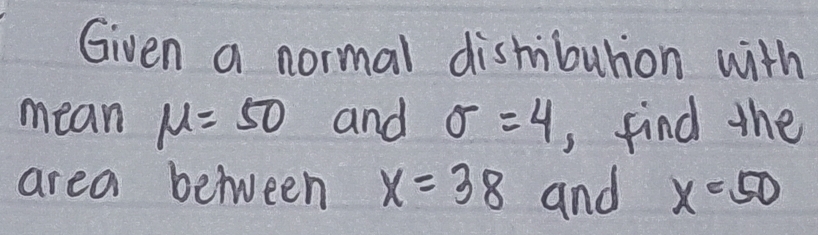 Given a normal distribution with
mean μ= 50 and σ =4, find the
area between x=38 and x=50